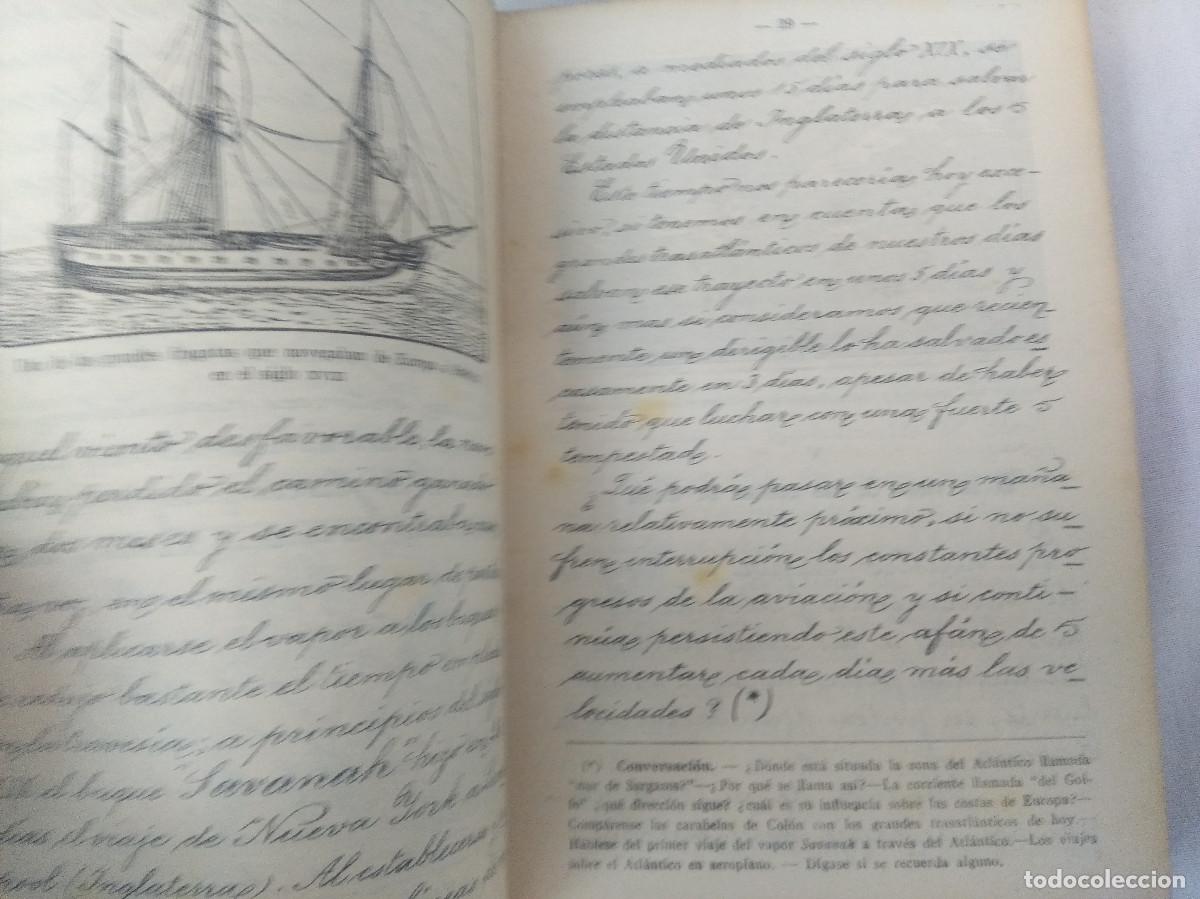 Una de las grandes fragatas que navegaban de Europa a
en el siglo XVIII
aquel viento desfavorable, la
perdido el camino
dos meses y se encontraba,
en el mismo lugar de
Al aplicarse el vapor a los
bastante el tiempo en
la travesía; a principios del
el buque "Savanah" hizo en
el viaje de Nueva York a
(Inglaterra). Al establecerse
— 29 —
a mediados del siglo XIX, se
empleaban unos 15 días para salvar
la distancia de Inglaterra a los
Estados Unidos.
Este tiempo nos parecería hoy exce-
sivo, si tenemos en cuenta que los
grandes trasatlánticos de nuestros días
salvan ese trayecto en unos 5 días y
aún mas si consideramos que recien-
temente un dirigible lo ha salvado es-
casamente en 3 días, apesar de haber
tenido que luchar con una fuerte
tempestad.
¿Qué podrá pasar en un maña-
na relativamente próximo, si no su-
fren interrupción los constantes pro-
gresos de la aviación y si conti-
núa persistiendo este afán de
aumentar cada día más las ve-
locidades? (*)
(*) Conversación. — ¿Dónde está situada la zona del Atlántico llamada
"mar de Sargazos?"—¿Por qué se llama así?—La corriente llamada "del Gol-
fo" ¿qué dirección sigue? ¿cuál es su influencia sobre las costas de Europa?—
Compárense las carabelas de Colón con los grandes transatlánticos de hoy.—
Háblese del primer viaje del vapor Savanak a través del Atlántico.—Los viajes
sobre el Atlántico en aeroplano. — Dígase si se recuerda alguno.
todocoleccion